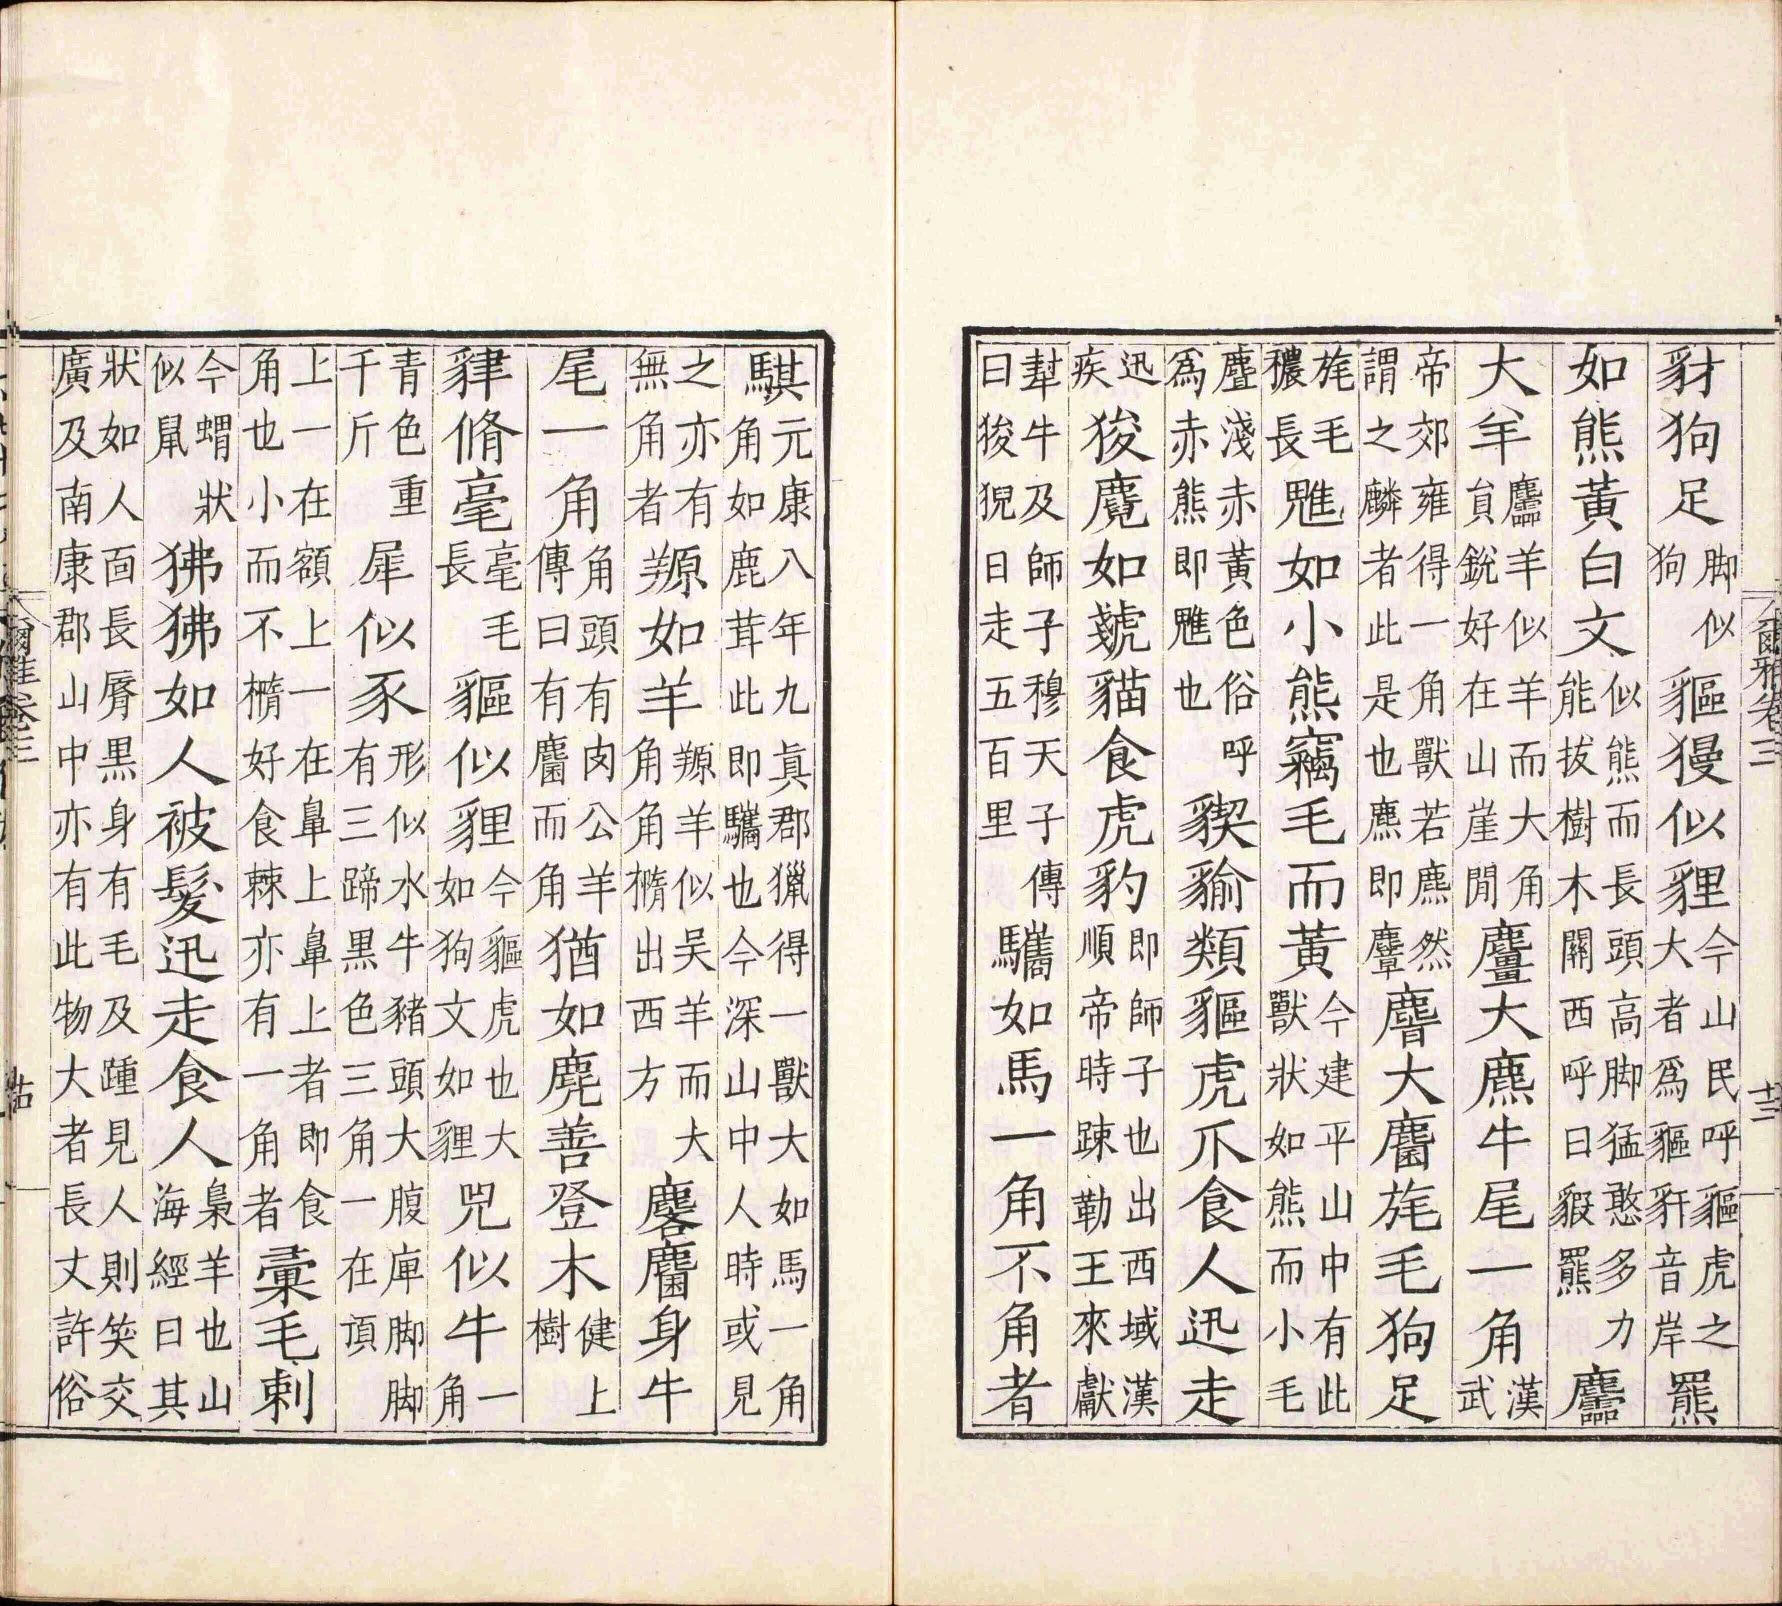 爾雅卷三 十三
豺狗足脚似狗貙獌似貍今山民呼貙虎之大者爲貙豻音岸羆
如熊黃白文似熊而長頭高脚猛憨多力能拔樹木關西呼曰貑羆麢
大羊麢羊似羊而大角員銳好在山崖閒麠大麃牛尾一角漢武
帝郊雍得一角獸若麃然謂之麟者此是也麃即麞𪊨大麕旄毛狗足
旄毛穠長魋如小熊竊毛而黃今建平山中有此獸狀如熊而小毛
麆淺赤黃色俗呼爲赤熊即魋也䝟貐類貙虎爪食人迅走
迅疾狻麑如虥貓食虎豹即師子也出西域漢順帝時踈勒王來獻
犎牛及師子穆天子傳曰狻猊日走五百里驨如馬一角不角者
騏元康八年九真郡獵得一獸大如馬一角角如鹿茸此即驨也今深山中人時或見
之亦有無角者羱如羊羱羊似吳羊而大角角橢出西方麐麕身牛
尾一角角頭有肉公羊傳曰有麕而角猶如麂善登木健上樹
貄脩毫毫毛長貙似貍今貙虎也大如狗文如貍兕似牛一角
青色重千斤犀似豕形似水牛豬頭大腹庳脚脚有三蹄黑色三角一在頂
上一在額上一在鼻上鼻上者即食角也小而不橢好食棘亦有一角者彙毛刺
今蝟狀似鼠狒狒如人被髮迅走食人梟羊也山海經曰其
狀如人面長脣黑身有毛及踵見人則笑交廣及南康郡山中亦有此物大者長丈許俗
爾雅卷三